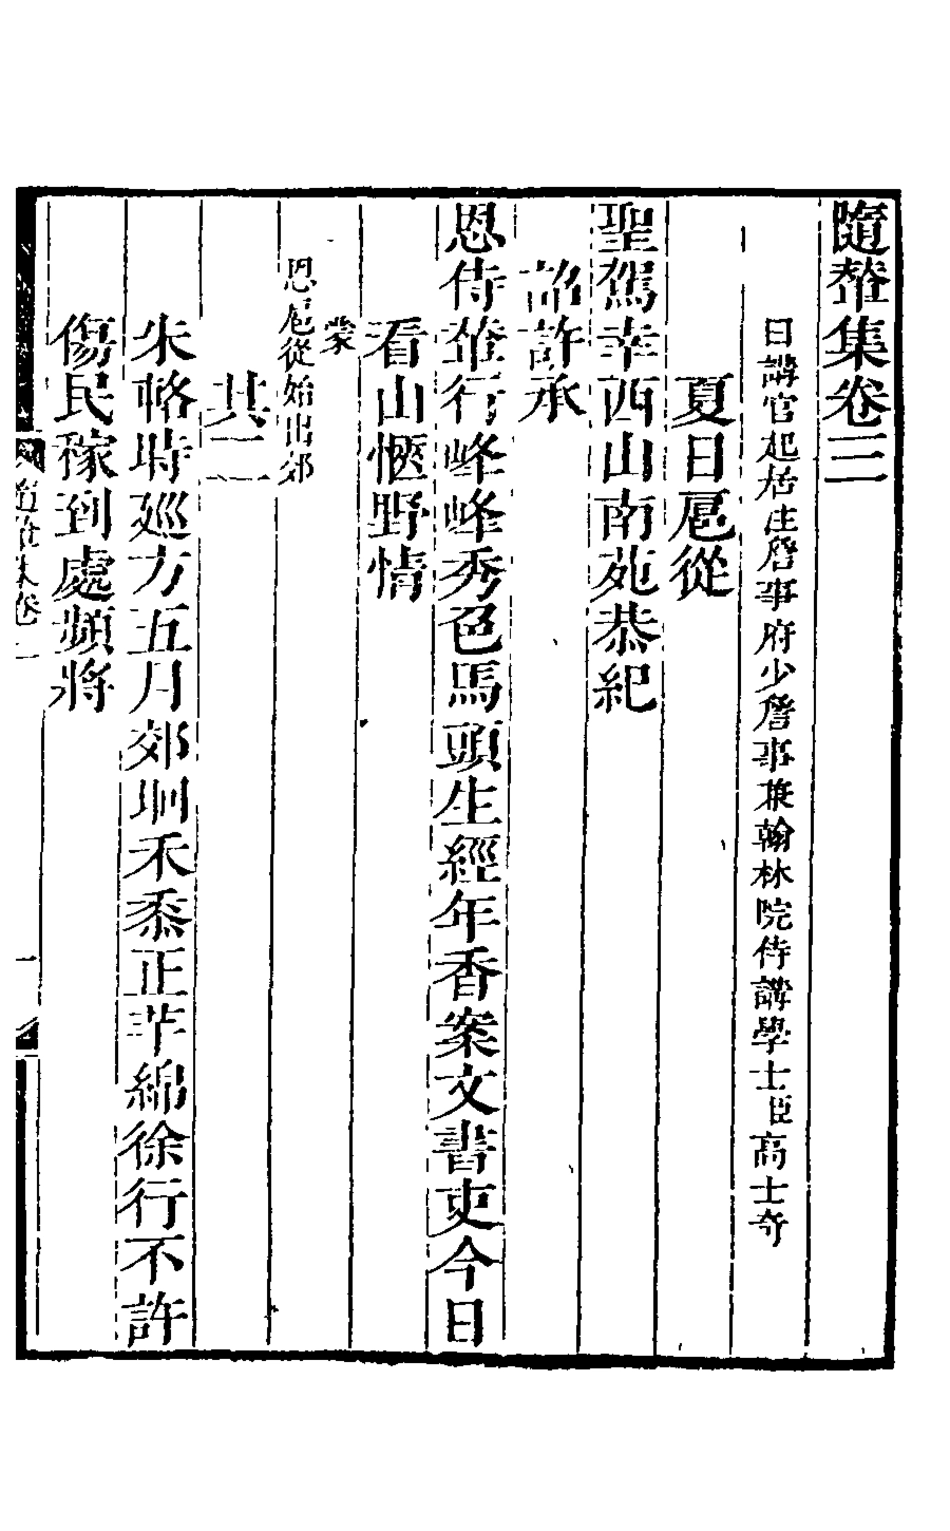 隨輦集卷三
日講官起居注詹事府少詹事兼翰林院侍講學士臣高士奇
夏日扈從
聖駕幸西山南苑恭紀
詔許承
恩侍輦行峰峰秀色馬頭生經年香案文書吏今日
看山愜野情
蒙
恩扈從始出郊
其二
朱輅時廵方五月郊坰禾黍正芊綿徐行不許
傷民稼到處頻將